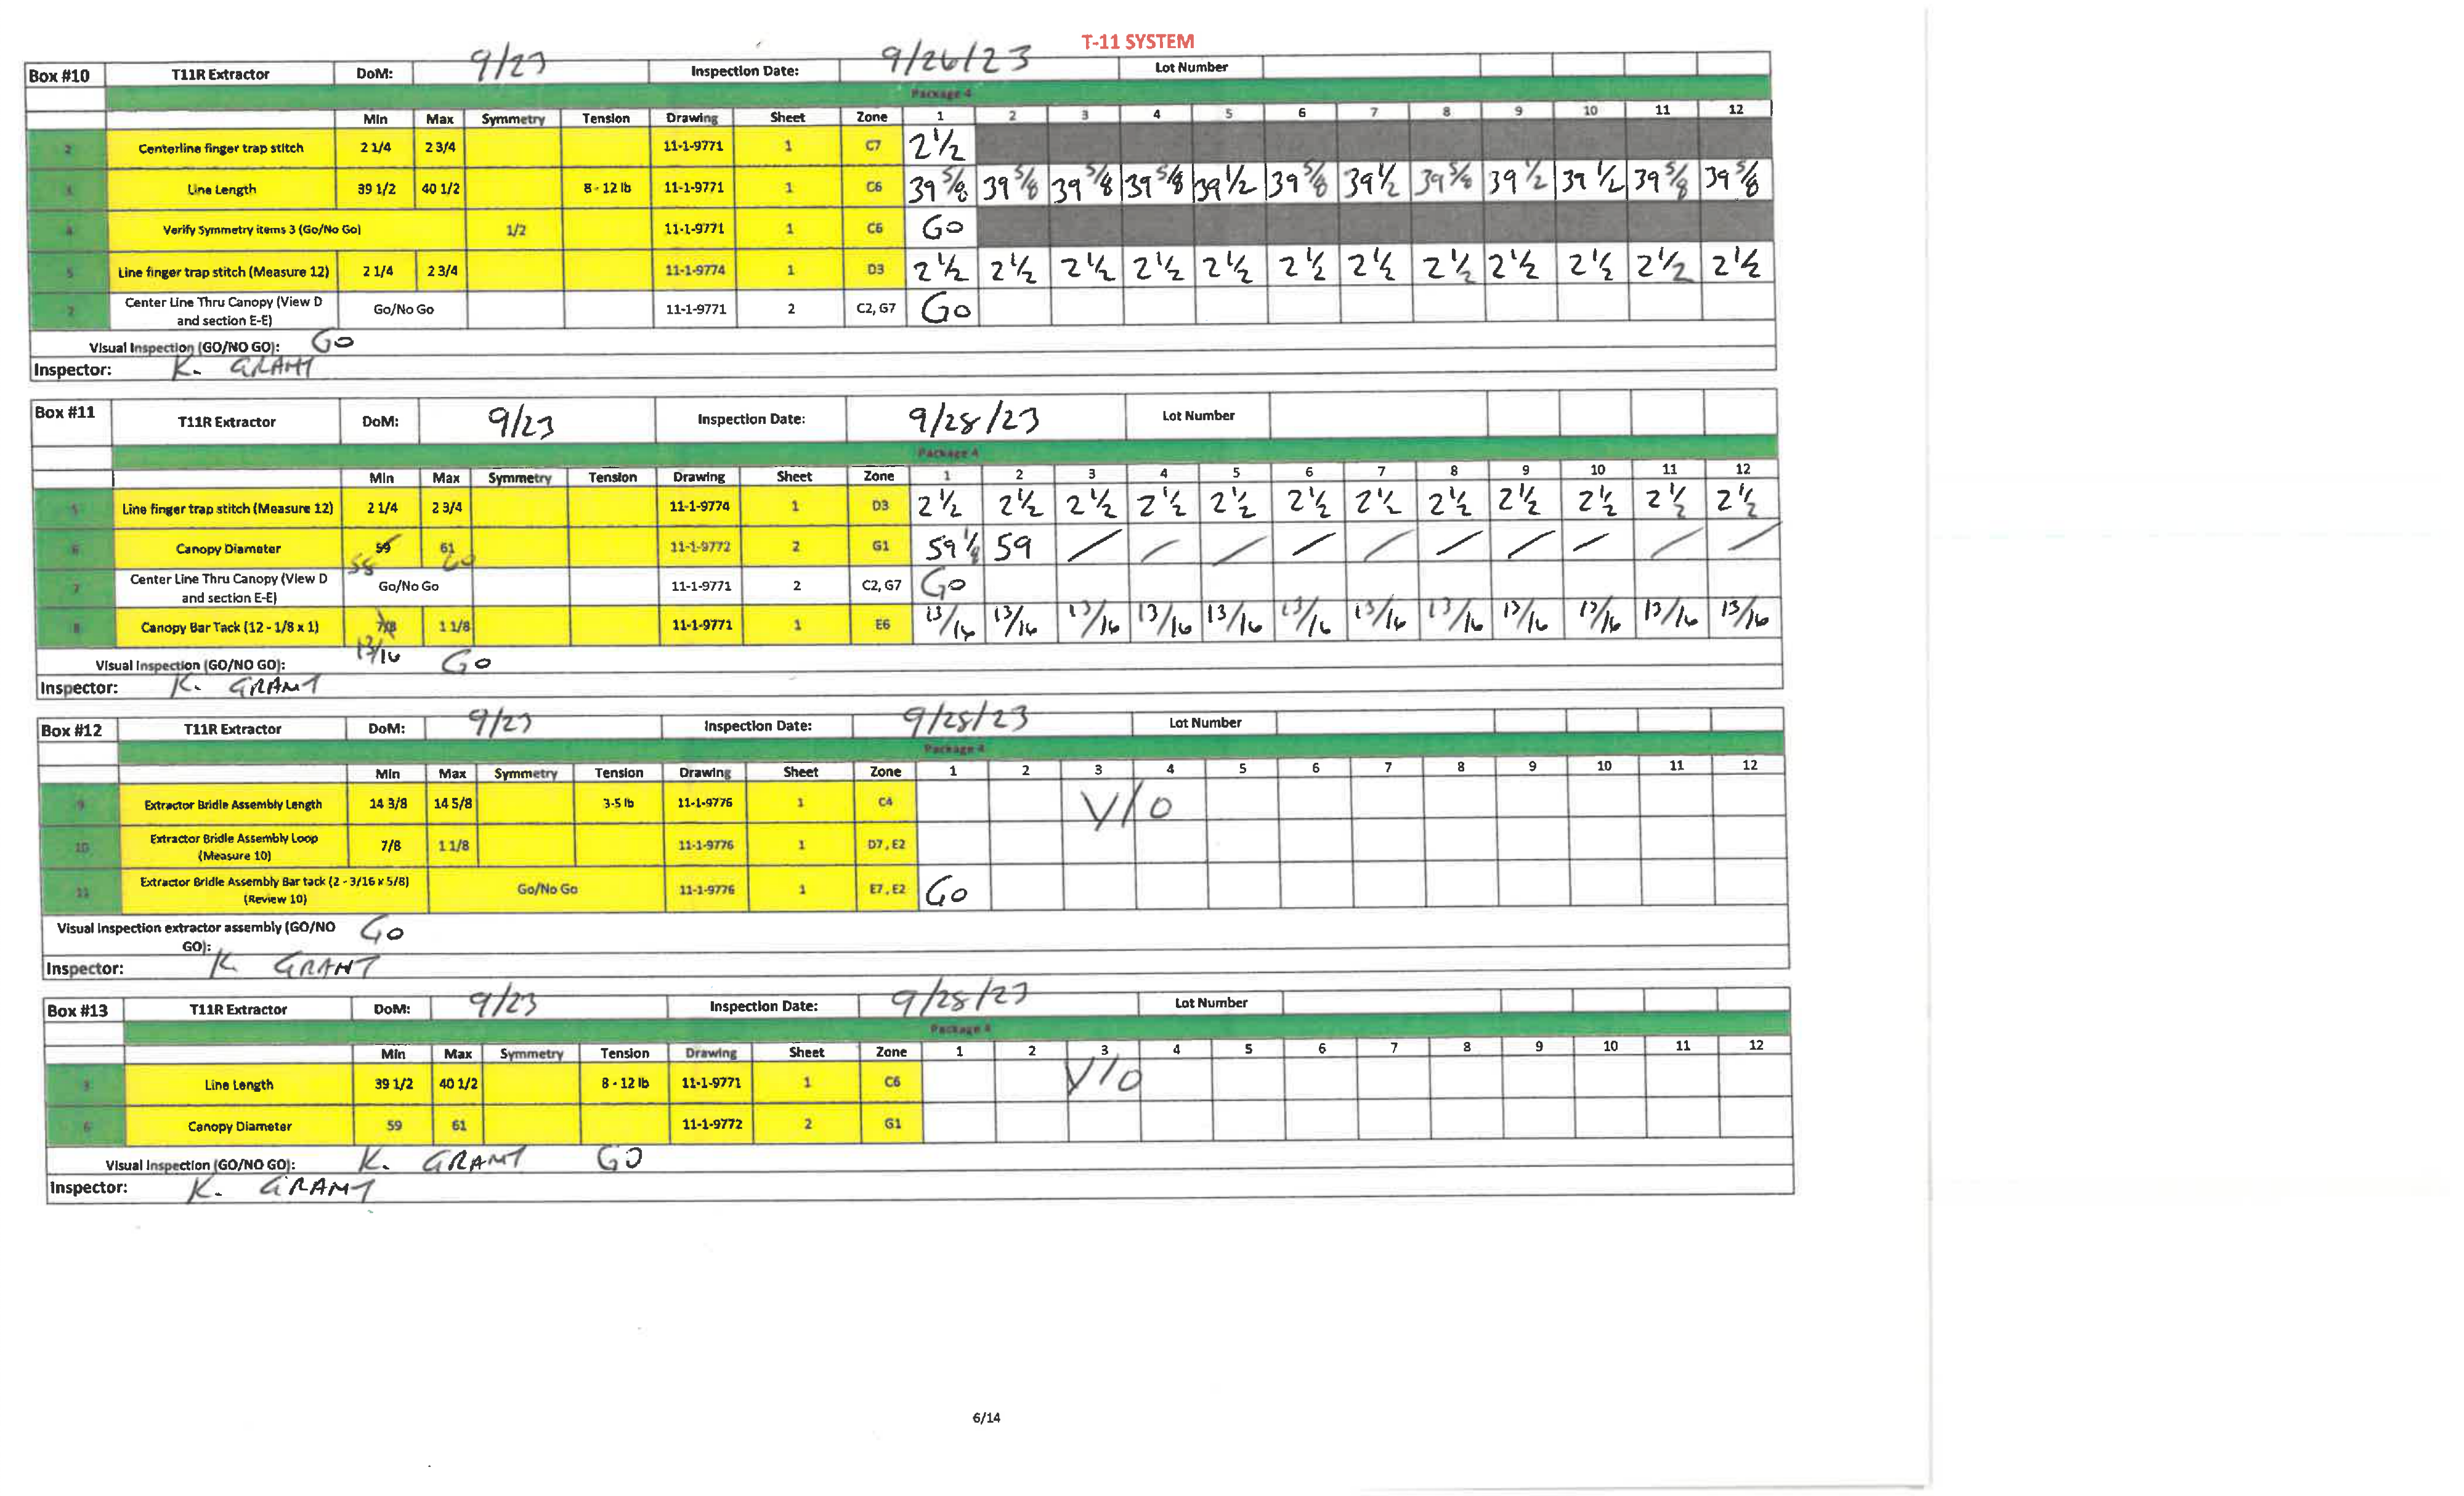 T-11 SYSTEM
Box #10 T11R Extractor DoM: 9/23 Inspection Date: 9/26/23 Lot Number
Package 4
Min Max Symmetry Tension Drawing Sheet Zone 1 2 3 4 5 6 7 8 9 10 11 12
2 Centerline finger trap stitch 2 1/4 2 3/4 11-1-9771 1 C7 2 1/2
3 Line Length 39 1/2 40 1/2 8 - 12 lb 11-1-9771 1 C6 39 5/8 39 5/8 39 5/8 39 5/8 39 1/2 39 5/8 39 1/2 39 5/8 39 1/2 39 1/2 39 5/8 39 5/8
4 Verify Symmetry items 3 (Go/No Go) 1/2 11-1-9771 1 C6 Go
5 Line finger trap stitch (Measure 12) 2 1/4 2 3/4 11-1-9774 1 D3 2 1/2 2 1/2 2 1/2 2 1/2 2 1/2 2 1/2 2 1/2 2 1/2 2 1/2 2 1/2 2 1/2 2 1/2
7 Center Line Thru Canopy (View D and section E-E) Go/No Go 11-1-9771 2 C2, G7 Go
Visual Inspection (GO/NO GO): GO
Inspector: K. GRANT
Box #11 T11R Extractor DoM: 9/23 Inspection Date: 9/28/23 Lot Number
Package 4
Min Max Symmetry Tension Drawing Sheet Zone 1 2 3 4 5 6 7 8 9 10 11 12
5 Line finger trap stitch (Measure 12) 2 1/4 2 3/4 11-1-9774 1 D3 2 1/2 2 1/2 2 1/2 2 1/2 2 1/2 2 1/2 2 1/2 2 1/2 2 1/2 2 1/2 2 1/2 2 1/2
6 Canopy Diameter 59 58 61 60 11-1-9772 2 G1 59 1/8 59 / / / / / / / / / /
7 Center Line Thru Canopy (View D and section E-E) Go/No Go 11-1-9771 2 C2, G7 Go
8 Canopy Bar Tack (12 - 1/8 x 1) 7/8 13/16 1 1/8 11-1-9771 1 E6 13/16 13/16 13/16 13/16 13/16 13/16 13/16 13/16 13/16 13/16 13/16 13/16
Visual Inspection (GO/NO GO): GO
Inspector: K. GRANT
Box #12 T11R Extractor DoM: 9/23 Inspection Date: 9/28/23 Lot Number
Package 4
Min Max Symmetry Tension Drawing Sheet Zone 1 2 3 4 5 6 7 8 9 10 11 12
9 Extractor Bridle Assembly Length 14 3/8 14 5/8 3-5 lb 11-1-9776 1 C4 V/O
10 Extractor Bridle Assembly Loop (Measure 10) 7/8 1 1/8 11-1-9776 1 D7, E2
11 Extractor Bridle Assembly Bar tack (2 - 3/16 x 5/8) (Review 10) Go/No Go 11-1-9776 1 E7, E2 Go
Visual Inspection extractor assembly (GO/NO GO): Go
Inspector: K GRANT
Box #13 T11R Extractor DoM: 9/23 Inspection Date: 9/28/23 Lot Number
Package 4
Min Max Symmetry Tension Drawing Sheet Zone 1 2 3 4 5 6 7 8 9 10 11 12
3 Line Length 39 1/2 40 1/2 8 - 12 lb 11-1-9771 1 C6 V/O
6 Canopy Diameter 59 61 11-1-9772 2 G1
Visual Inspection (GO/NO GO): K. GRANT GO
Inspector: K. GRANT
6/14